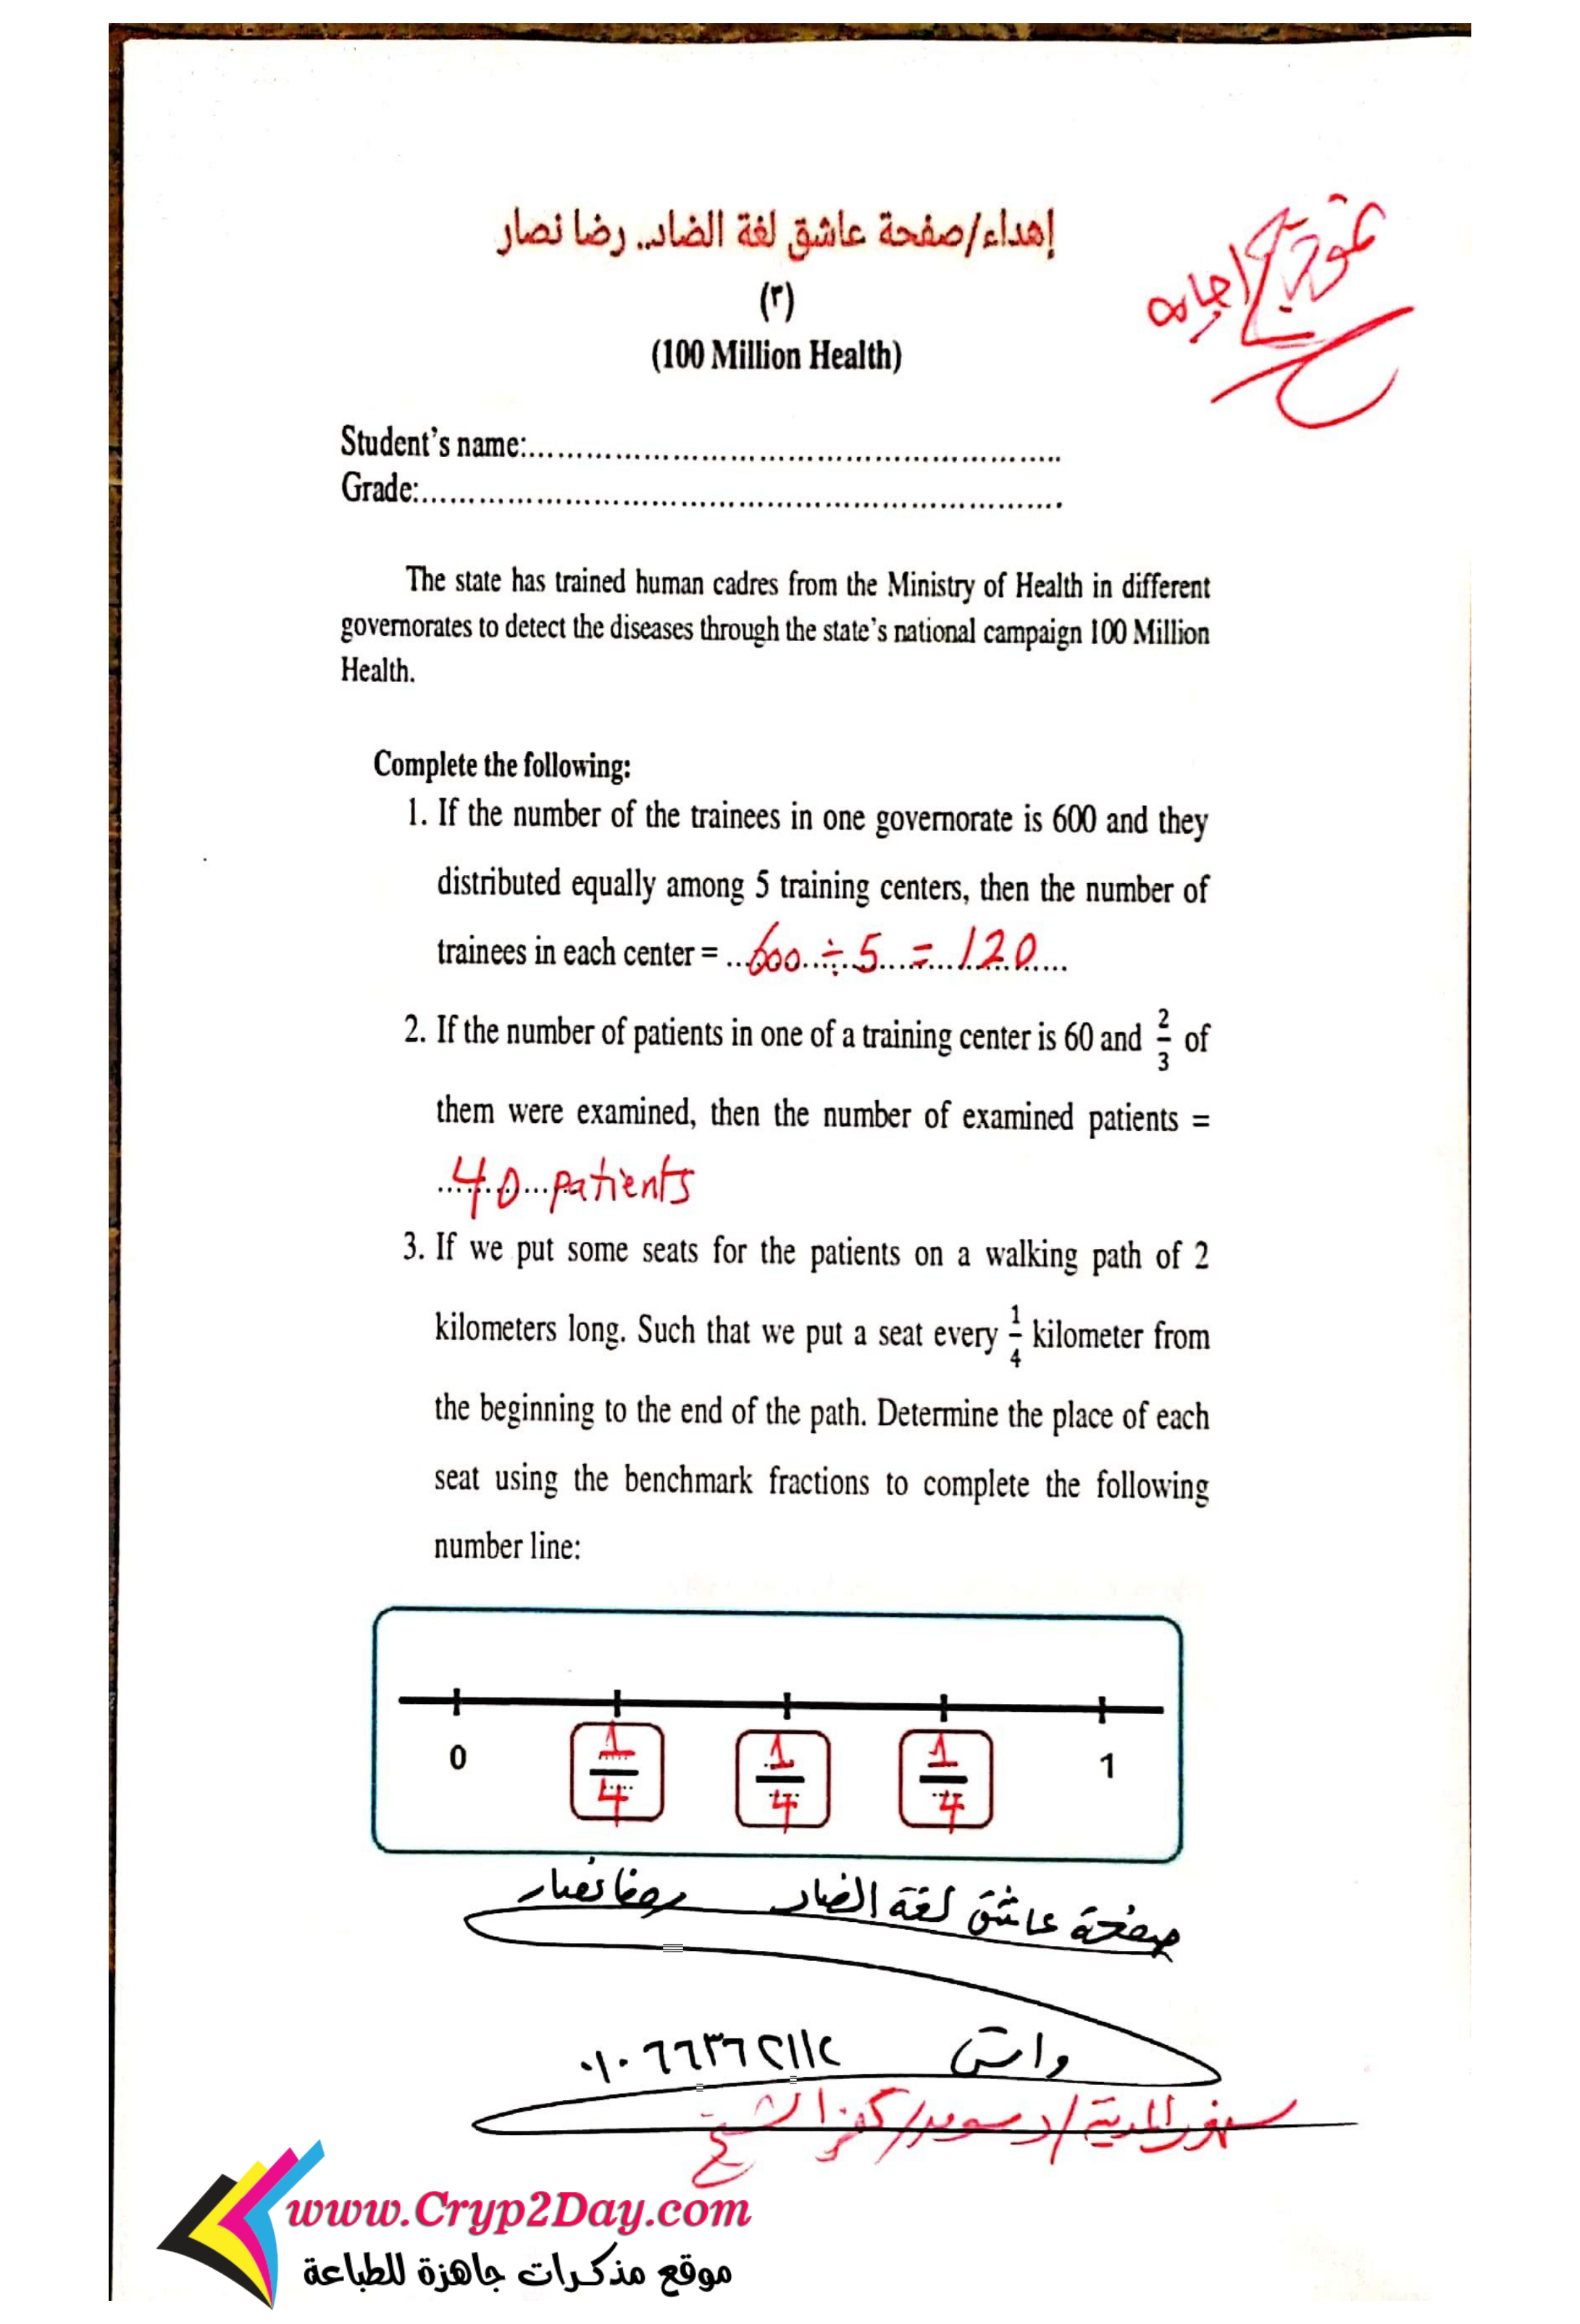 إهداء/صفحة عاشق لغة الضاد.. رضا نصار
إجابة
(٣)
(100 Million Health)
Student's name:..........................................................
Grade:......................................................................
The state has trained human cadres from the Ministry of Health in different
governorates to detect the diseases through the state's national campaign 100 Million
Health.
Complete the following:
1. If the number of the trainees in one governorate is 600 and they
distributed equally among 5 training centers, then the number of
trainees in each center = ...600 ÷ 5 = 120...
2. If the number of patients in one of a training center is 60 and 2/3 of
them were examined, then the number of examined patients =
...40 patients
3. If we put some seats for the patients on a walking path of 2
kilometers long. Such that we put a seat every 1/4 kilometer from
the beginning to the end of the path. Determine the place of each
seat using the benchmark fractions to complete the following
number line:
0 1/4 1/4 1/4 1
صفحة عاشق لغة الضاد رضا نصار
واتس ٠١٠٦٦٣٦٢١١٢
كفر الشيخ
www.Cryp2Day.com
موقع مذكرات جاهزة للطباعة